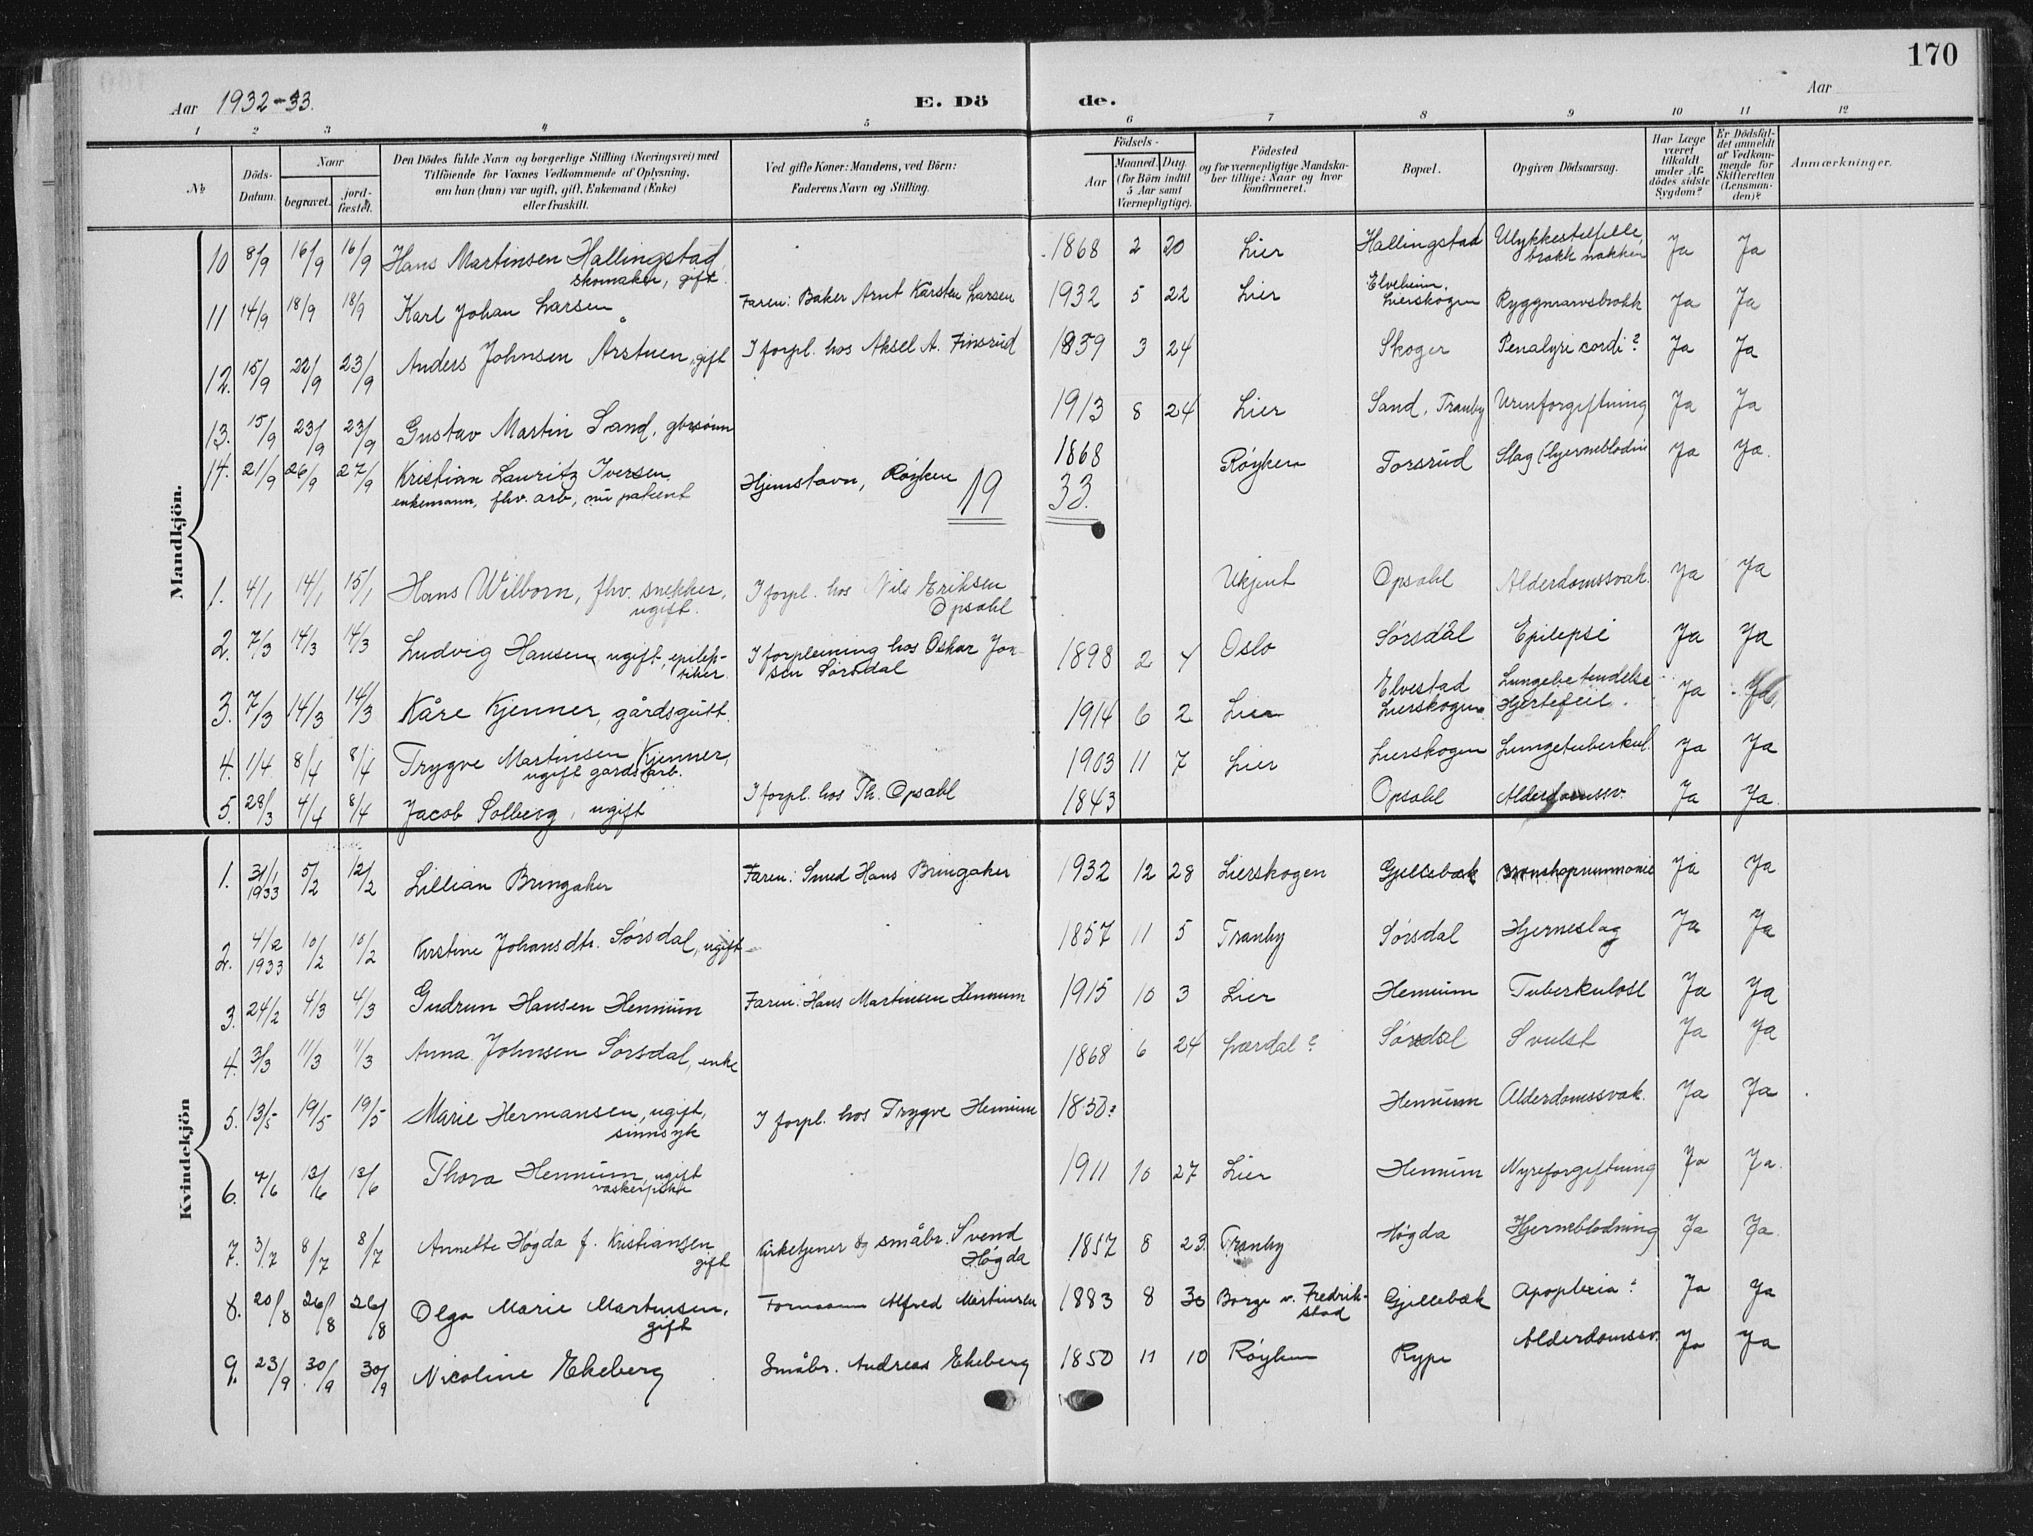 170
Aar 1932-33.
E. Dö de.
Aar
1 2 3 4 5 6 7 8 9 10 11 12
No
Döds-Datum.
Naar begravet. jord-fæstet.
Den Dödes fulde Navn og borgerlige Stilling (Næringsvei) med Tilföiende for Voxnes Vedkommende af Oplysning, om han (hun) var ugift, gift, Enkemand (Enke) eller fraskilt.
Ved gifte Koner: Mandens, ved Börn: Faderens Navn og Stilling.
Födsels-
Aar Maaned. Dag. (for Börn indtil 5 Aar samt Værnepligtige).
Födested og for værnepligtige Mandskaber tillige: Naar og hvor konfirmeret.
Bopæl.
Opgiven Dödsaarsag.
Har Læge været tilkaldt under Afdödes sidste Sygdom?
Er Dödsfaldet anmeldt af Vedkommende for Skifteretten (Lensmanden)?
Anmærkninger.
Mandkjön.
10 8/9 16/9 16/9 Hans Martinsen Hallingstad, skomaker, gift. 1868 2 20 Lier Hallingstad Ulykkestilfelle, brakk nakken Ja Ja
11 14/9 18/9 18/9 Karl Johan Larsen Faren: Baker Arnt Karsten Larsen 1932 5 22 Lier Elveheim, Lierskogen Ryggmarvsbrokk Ja Ja
12. 15/9 22/9 23/9 Anders Johnsen Årstuen, gift I forpl. hos Aksel A. Finsrud 1859 3 24 Skoger cordi? Ja Ja
13. 15/9 23/9 23/9 Gustav Martin Sand, gbrsønn 1913 8 24 Lier Sand, Tranby Urinforgiftning Ja Ja
14. 21/9 26/9 27/9 Kristian Lauritz Iversen, enkemann, fhv. arb, nu patient Hjemstavn, Røyken 1868 Røyken Torsrud Slag (hjerneblødn Ja Ja.
19 33.
1. 4/1 14/1 15/1 Hans Wilborn, fhv. snekker, ugift. I forpl. hos Nils Eriksen Opsahl Ukjent Opsahl Alderdomssvak. Ja Ja
2. 7/3 14/3 14/3 Ludvig Hansen, ugift, epileptiker I forpleining hos Oskar Jonsen Sørsdal 1898 2 4 Oslo Sørsdal Epilepsi Ja Ja
3. 7/3 14/3 14/3 Kåre Kjenner, gårdsgutt. 1914 6 2 Lier Elvestad Lierskogen Lungebetendelse Hjertefeil. Ja Ja
4. 1/4 8/4 8/4 Trygve Martinsen Kjenner, ugift gårdsarb. 1903 11 7 Lier Lierskogen Lungetuberkul. Ja Ja
5. 28/3 4/4 8/4 Jacob Solberg, ugift I forpl. hos Th. Opsahl 1843 Opsahl Alderdomssv. Ja Ja.
Kvindekjön
1. 31/1 1933 5/2 12/2 Lillian Bringaker Faren: Smed Hans Bringaker 1932 12 28 Lierskogen Gjellebæk Bronchopneumonie Ja Ja
2. 4/2 1933 10/2 10/2 Kirstine Johansdtr. Sørsdal, ugift 1857 11 5 Tranby Sørsdal Hjerneslag Ja Ja
3. 24/2 4/3 4/3 Gudrun Hansen Hennum Faren: Hans Martinsen Hennum 1915 10 3 Lier Hennum Tuberkulose Ja Ja
4. 3/3 11/3 11/3 Anna Johnsen Sørsdal, enke 1868 6 24 Sørsdal Svulst Ja Ja
5. 13/5 19/5 19/5 Marie Hermansen, ugift, sinnsyk I forpl. hos Trygve Hennum 1850? Hennum Alderdomssvak. Ja Ja
6. 7/6 13/6 13/6 Thora Hennum, ugift vaskeripike 1911 10 27 Lier Hennum Nyreforgiftning Ja Ja.
7. 3/7 8/7 8/7 Annette Høgda f. Kristiansen gift Kirketjener og småbr. Svend Høgda 1857 8 23. Tranby Høgda Hjerneblødning Ja Ja.
8. 20/8 26/8 26/8 Olga Marie Martinsen, gift Formann Alfred Martinsen 1883 8 30 Borge v. Fredrikstad Gjellebæk Apoplexia? Ja Ja
9. 23/9 30/9 30/9 Nicoline Ekeberg Småbr. Andreas Ekeberg 1850 11 10 Røyken Rype Alderdomssv. Ja Ja